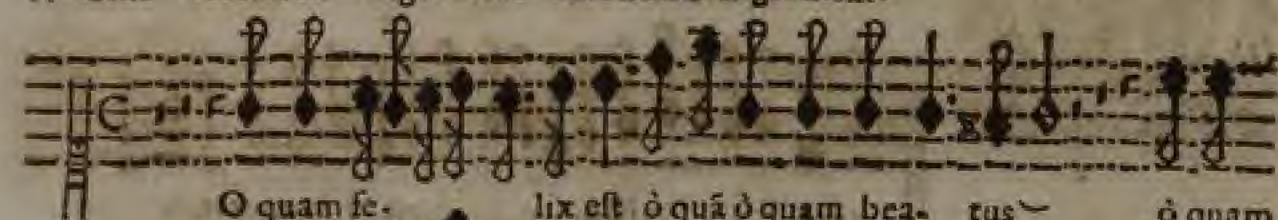 O quam fe- lix eſt ò quā ò quam bea- tus ò quam